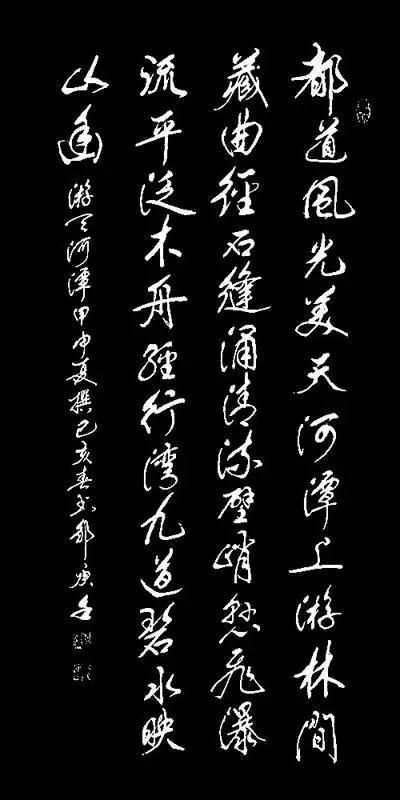 都道風光美天河潭上游林間
藏曲徑石縫涌清流壁峭懸飛瀑
流平泛木舟經行灣九道碧水映
山幽
游天河潭甲申夏撰己亥春书